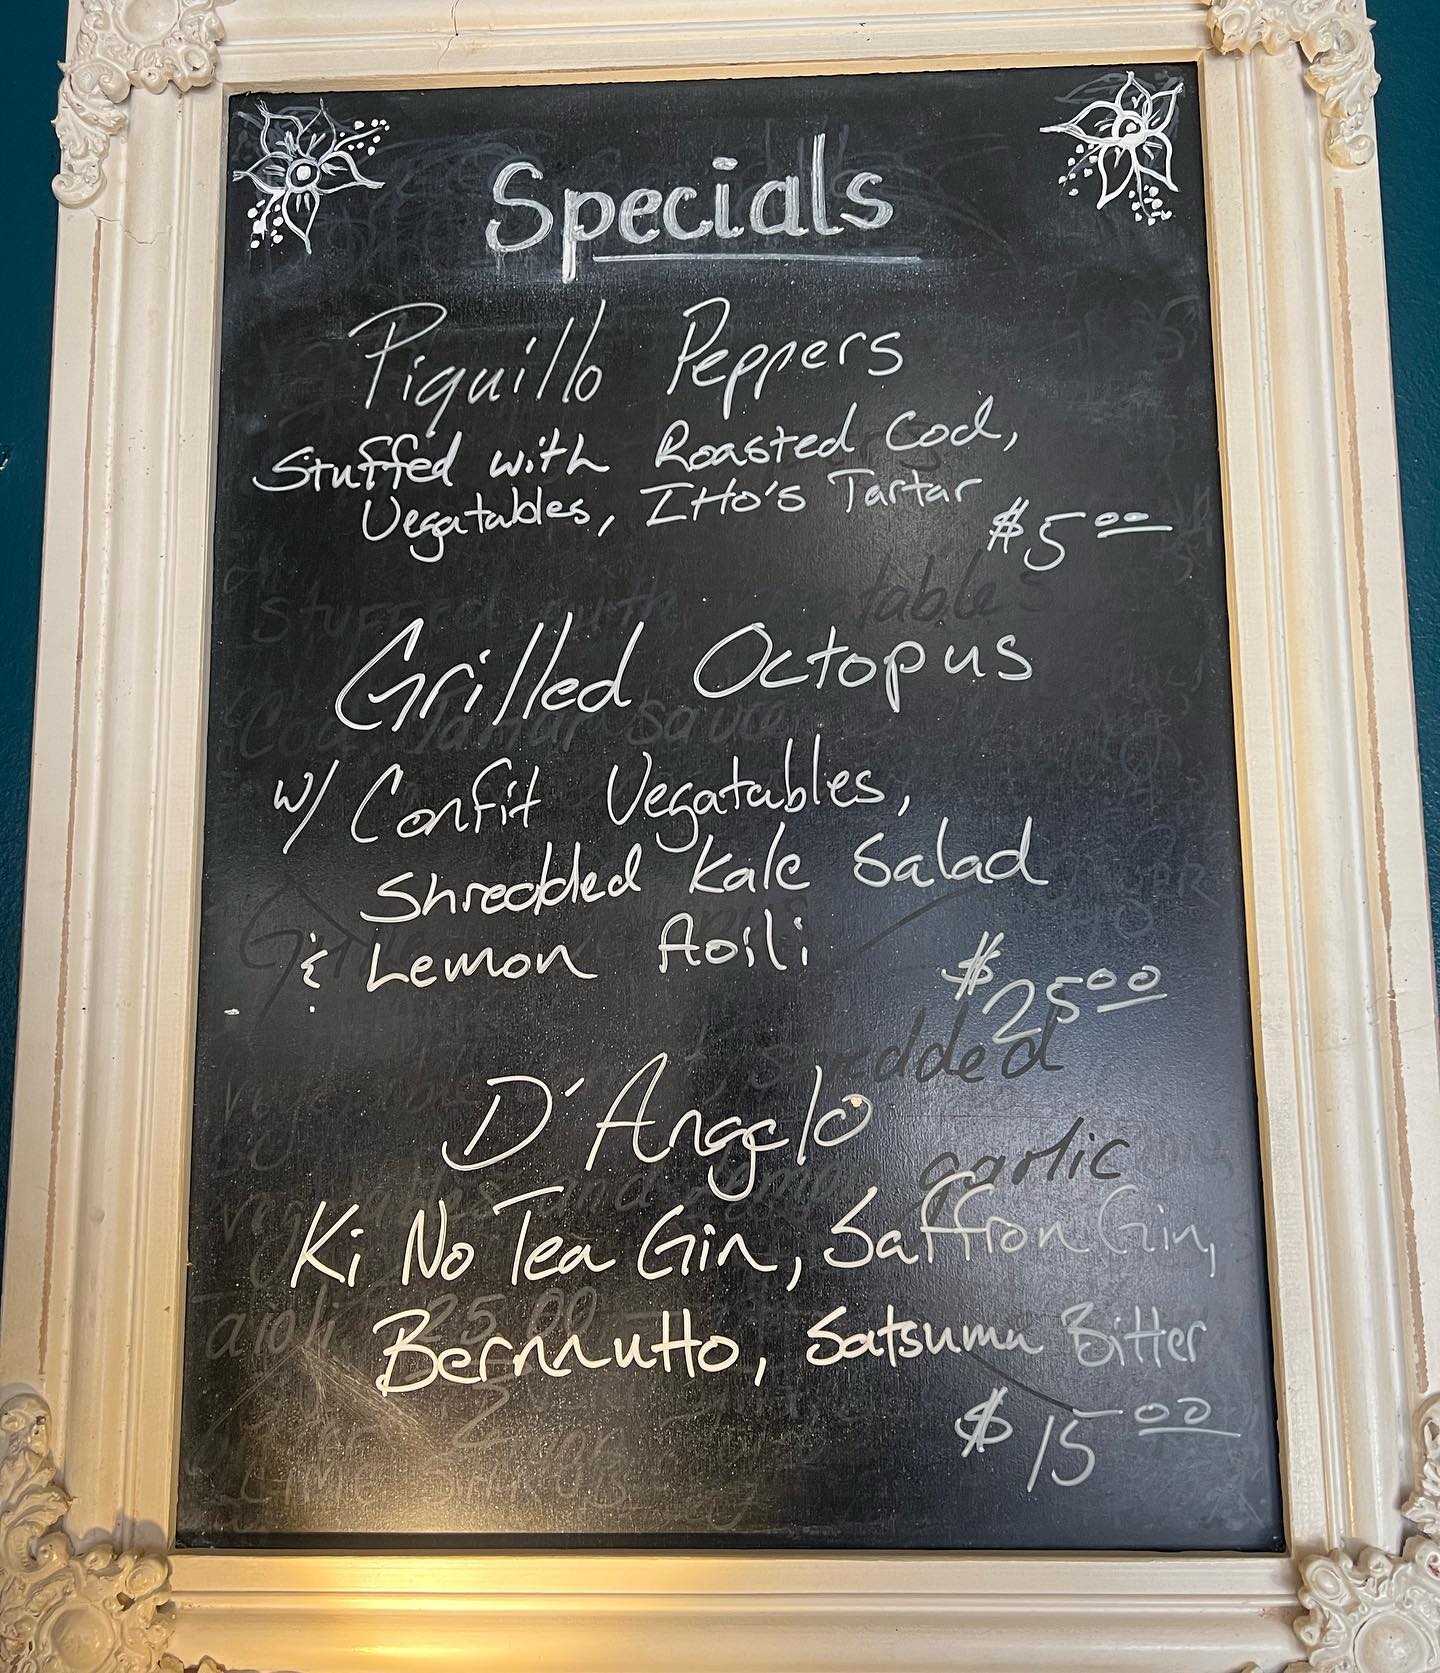 Specials
Piquillo Peppers
Stuffed with Roasted Cod,
Vegatables, Itto's Tartar
$5.00
Grilled Octopus
w/ Confit Vegatables,
Shredded Kale Salad
& Lemon Aoili
$25.00
D'Angelo
Ki No Tea Gin, Saffron Gin,
Bermutto, Satsuma Bitter
$15.00